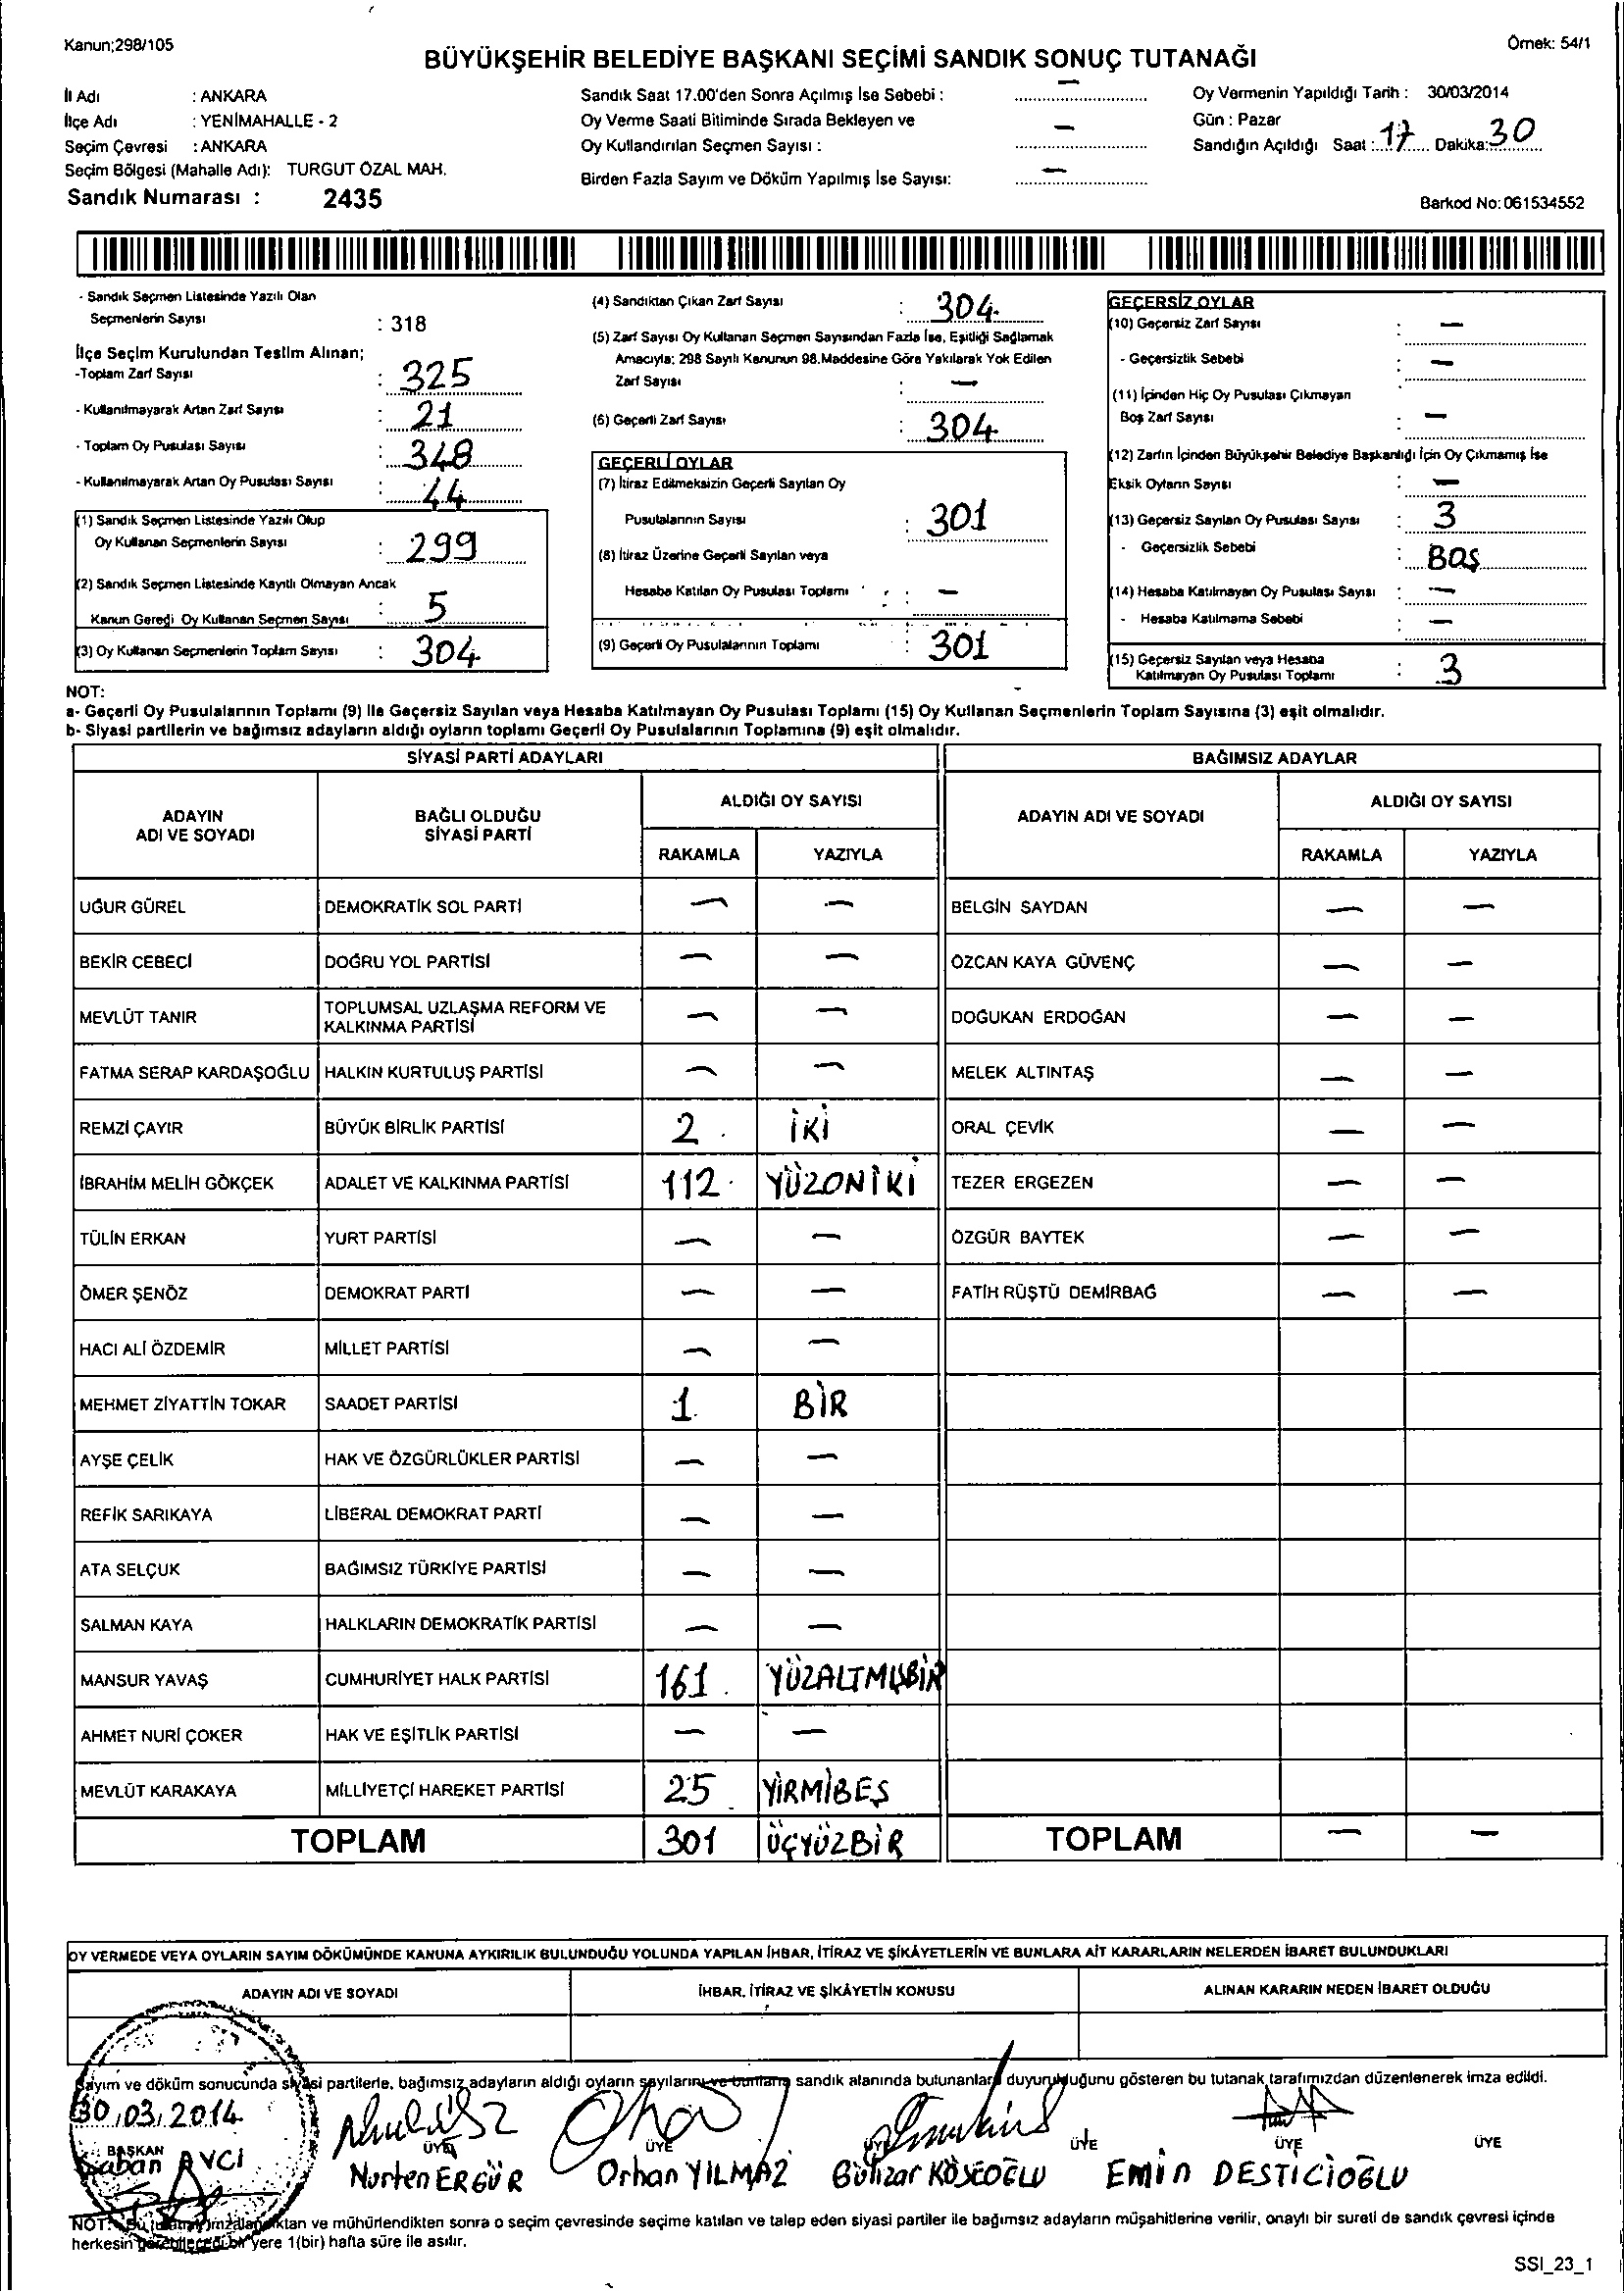 Kanun;298/105
Örnek: 54/1
BÜYÜKŞEHİR BELEDİYE BAŞKANI SEÇİMİ SANDIK SONUÇ TUTANAĞI
İl Adı : ANKARA
İlçe Adı : YENİMAHALLE - 2
Seçim Çevresi : ANKARA
Seçim Bölgesi (Mahalle Adı): TURGUT ÖZAL MAH.
Sandık Numarası : 2435
Sandık Saat 17.00'den Sonra Açılmış İse Sebebi : —
Oy Verme Saati Bitiminde Sırada Bekleyen ve
Oy Kullandırılan Seçmen Sayısı : —
Birden Fazla Sayım ve Döküm Yapılmış İse Sayısı: —
Oy Vermenin Yapıldığı Tarih : 30/03/2014
Gün : Pazar
Sandığın Açıldığı Saat : 17 Dakika: 30
Barkod No: 061534552
- Sandık Seçmen Listesinde Yazılı Olan
Seçmenlerin Sayısı : 318
İlçe Seçim Kurulundan Teslim Alınan;
-Toplam Zarf Sayısı : 325
- Kullanılmayarak Artan Zarf Sayısı : 21
- Toplam Oy Pusulası Sayısı : 348
- Kullanılmayarak Artan Oy Pusulası Sayısı : 44
(1) Sandık Seçmen Listesinde Yazılı Olup
Oy Kullanan Seçmenlerin Sayısı : 299
(2) Sandık Seçmen Listesinde Kayıtlı Olmayan Ancak
Kanun Gereği Oy Kullanan Seçmen Sayısı : 5
(3) Oy Kullanan Seçmenlerin Toplam Sayısı : 304
(4) Sandıktan Çıkan Zarf Sayısı : 304
(5) Zarf Sayısı Oy Kullanan Seçmen Sayısından Fazla İse, Eşitliği Sağlamak
Amacıyla; 298 Sayılı Kanunun 98.Maddesine Göre Yakılarak Yok Edilen
Zarf Sayısı : —
(6) Geçerli Zarf Sayısı : 304
GEÇERLİ OYLAR
(7) İtiraz Edilmeksizin Geçerli Sayılan Oy
Pusulalarının Sayısı : 301
(8) İtiraz Üzerine Geçerli Sayılan veya
Hesaba Katılan Oy Pusulası Toplamı : —
(9) Geçerli Oy Pusulalarının Toplamı : 301
GEÇERSİZ OYLAR
(10) Geçersiz Zarf Sayısı : —
- Geçersizlik Sebebi : —
(11) İçinden Hiç Oy Pusulası Çıkmayan
Boş Zarf Sayısı : —
(12) Zarfın İçinden Büyükşehir Belediye Başkanlığı İçin Oy Çıkmamış İse
Eksik Oyların Sayısı : —
(13) Geçersiz Sayılan Oy Pusulası Sayısı : 3
- Geçersizlik Sebebi : BOŞ
(14) Hesaba Katılmayan Oy Pusulası Sayısı : —
- Hesaba Katılmama Sebebi : —
(15) Geçersiz Sayılan veya Hesaba
Katılmayan Oy Pusulası Toplamı : 3
NOT:
a- Geçerli Oy Pusulalarının Toplamı (9) ile Geçersiz Sayılan veya Hesaba Katılmayan Oy Pusulası Toplamı (15) Oy Kullanan Seçmenlerin Toplam Sayısına (3) eşit olmalıdır.
b- Siyasi partilerin ve bağımsız adayların aldığı oyların toplamı Geçerli Oy Pusulalarının Toplamına (9) eşit olmalıdır.
SİYASİ PARTİ ADAYLARI BAĞIMSIZ ADAYLAR
ADAYIN
ADI VE SOYADI
BAĞLI OLDUĞU
SİYASİ PARTİ
ALDIĞI OY SAYISI
RAKAMLA YAZIYLA
ADAYIN ADI VE SOYADI
ALDIĞI OY SAYISI
RAKAMLA YAZIYLA
UĞUR GÜREL DEMOKRATİK SOL PARTİ — — BELGİN SAYDAN — —
BEKİR CEBECİ DOĞRU YOL PARTİSİ — — ÖZCAN KAYA GÜVENÇ — —
MEVLÜT TANIR TOPLUMSAL UZLAŞMA REFORM VE
KALKINMA PARTİSİ — — DOĞUKAN ERDOĞAN — —
FATMA SERAP KARDAŞOĞLU HALKIN KURTULUŞ PARTİSİ — — MELEK ALTINTAŞ — —
REMZİ ÇAYIR BÜYÜK BİRLİK PARTİSİ 2 İKİ ORAL ÇEVİK — —
İBRAHİM MELİH GÖKÇEK ADALET VE KALKINMA PARTİSİ 112 YÜZONİKİ TEZER ERGEZEN — —
TÜLİN ERKAN YURT PARTİSİ — — ÖZGÜR BAYTEK — —
ÖMER ŞENÖZ DEMOKRAT PARTİ — — FATİH RÜŞTÜ DEMİRBAĞ — —
HACI ALİ ÖZDEMİR MİLLET PARTİSİ — —
MEHMET ZİYATTİN TOKAR SAADET PARTİSİ 1 BİR
AYŞE ÇELİK HAK VE ÖZGÜRLÜKLER PARTİSİ — —
REFİK SARIKAYA LİBERAL DEMOKRAT PARTİ — —
ATA SELÇUK BAĞIMSIZ TÜRKİYE PARTİSİ — —
SALMAN KAYA HALKLARIN DEMOKRATİK PARTİSİ — —
MANSUR YAVAŞ CUMHURİYET HALK PARTİSİ 161 YÜZALTMIŞBİR
AHMET NURİ ÇOKER HAK VE EŞİTLİK PARTİSİ — —
MEVLÜT KARAKAYA MİLLİYETÇİ HAREKET PARTİSİ 25 YİRMİBEŞ
TOPLAM 301 ÜÇYÜZBİR TOPLAM — —
OY VERMEDE VEYA OYLARIN SAYIM DÖKÜMÜNDE KANUNA AYKIRILIK BULUNDUĞU YOLUNDA YAPILAN İHBAR, İTİRAZ VE ŞİKÂYETLERİN VE BUNLARA AİT KARARLARIN NELERDEN İBARET BULUNDUKLARI
ADAYIN ADI VE SOYADI İHBAR, İTİRAZ VE ŞİKÂYETİN KONUSU ALINAN KARARIN NEDEN İBARET OLDUĞU
Sayım ve döküm sonucunda siyasi partilerle, bağımsız adayların aldığı oyların sayılarını ve bunların sandık alanında bulunanlara duyurulduğunu gösteren bu tutanak tarafımızdan düzenlenerek imza edildi.
30.03.2014
BAŞKAN ÜYE ÜYE ÜYE ÜYE ÜYE ÜYE
Şaban AVCI Nurten ERGÜR Orhan YILMAZ Gülizar KÖSEOĞLU Emin DESTİCİOĞLU
NOT: Bu tutanak imzalandıktan ve mühürlendikten sonra o seçim çevresinde seçime katılan ve talep eden siyasi partiler ile bağımsız adayların müşahitlerine verilir, onaylı bir sureti de sandık çevresi içinde
herkesin görebileceği bir yere 1(bir) hafta süre ile asılır.
SSI_23_1